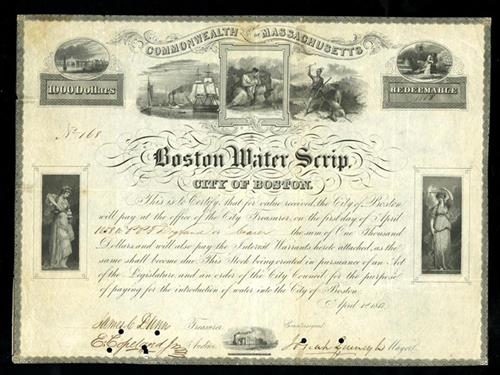 COMMONWEALTH OF MASSACHUSETTS
1000 Dollars
REDEEMABLE
No. 168
Boston Water Scrip,
CITY OF BOSTON.
This is to Certify, that for value received, the City of Boston
will pay at the office of the City Treasurer, on the first day of April
or bearer the sum of One Thousand
Dollars and will also pay the Interest Warrants hereto attached, as the
same shall become due. This Stock being created in pursuance of an Act
of the Legislature, and an order of the City Council for the purpose
of paying for the introduction of water into the City of Boston.
April 1st
James C. Dunn Treasurer
Countersigned
E. Copeland Jr. Auditor
Josiah Quincy Jr. Mayor.